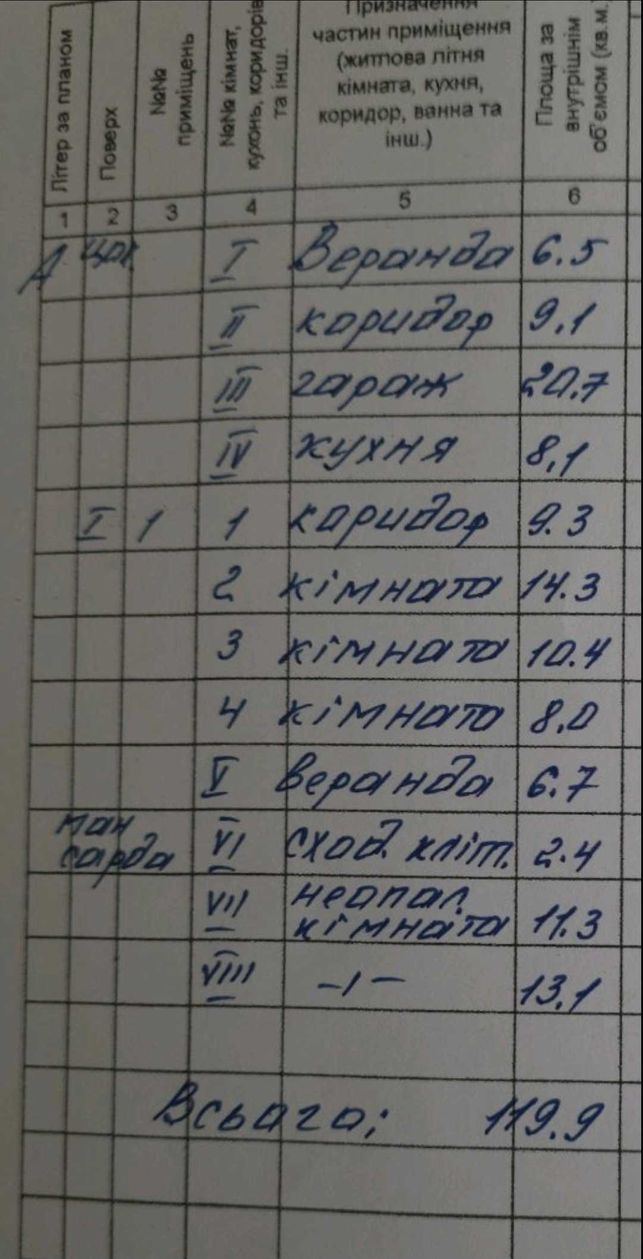 Літер за планом
Поверх
№№ приміщень
№№ кімнат, кухонь, коридорів та інш.
Призначення
частин приміщення
(житлова літня
кімната, кухня,
коридор, ванна та
інш.)
Площа за внутрішнім об'ємом (кв.м.
1 2 3 4 5 6
А цок. I Веранда 6.5
II коридор 9.1
III гараж 20.7
IV кухня 8,1
I 1 1 коридор 9.3
2 кімната 14.3
3 кімната 10.4
4 кімната 8.0
V веранда 6.7
ман
сарда VI сход. кліт. 2.4
VII неопал.
кімната 11.3
VIII -ı- 13,1
Всього; 119.9